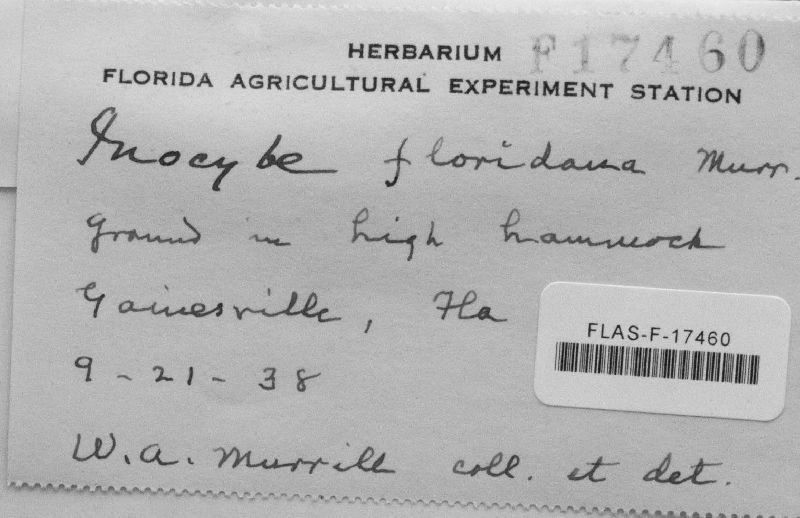 HERBARIUM F17460
FLORIDA AGRICULTURAL EXPERIMENT STATION
Inocybe floridana Murr.
ground in high hammock
Gainesville, Fla
FLAS-F-17460
9-21-38
W.A. Murrill coll. et det.